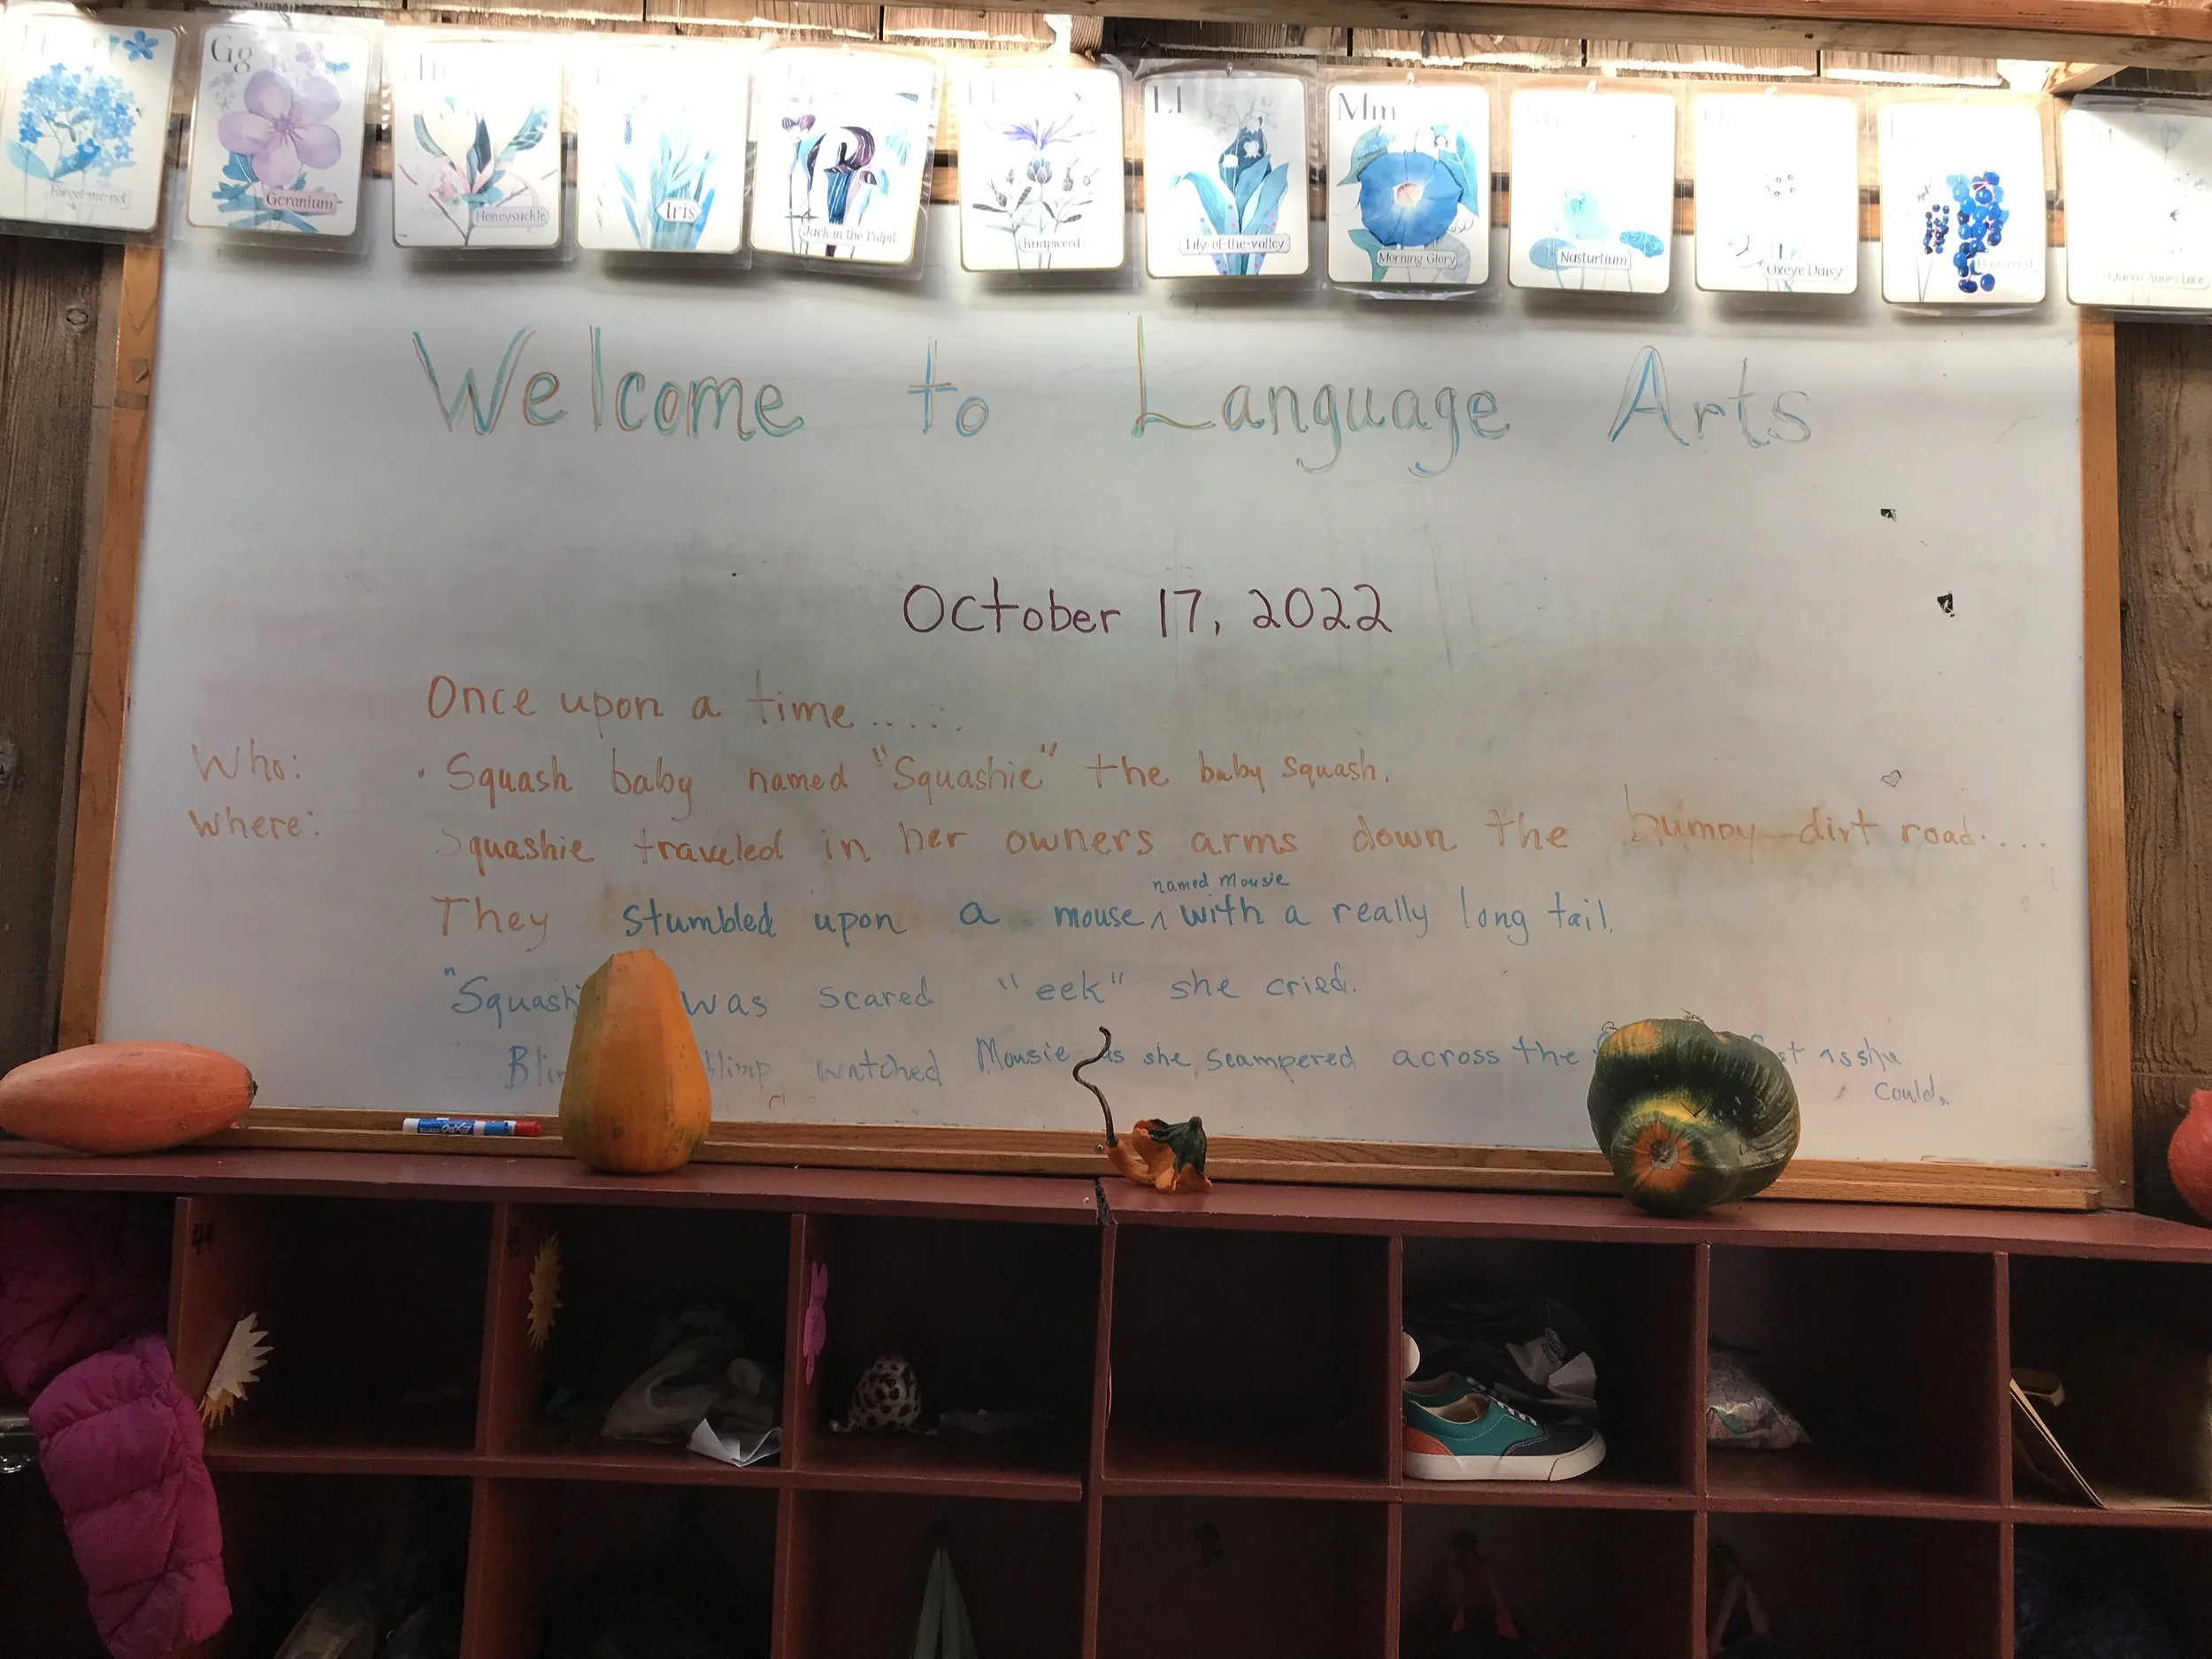 Forget-me-not
Gg
Geranium
Honeysuckle
Iris
Jack-in-the-Pulpit
Knapweed
Ll
Lily-of-the-valley
Mm
Morning Glory
Nasturtium
Oxeye Daisy
Queen Anne's Lace
Welcome to Language Arts
October 17, 2022
Once upon a time......
Who: . Squash baby named "Squashie" the baby squash.
Where: Squashie traveled in her owners arms down the bumpy dirt road....
named Mousie
They stumbled upon a mouse ^ with a really long tail.
was scared "eek" she cried.
watched Mousie as she scampered across the as she
could.
EXPO
44